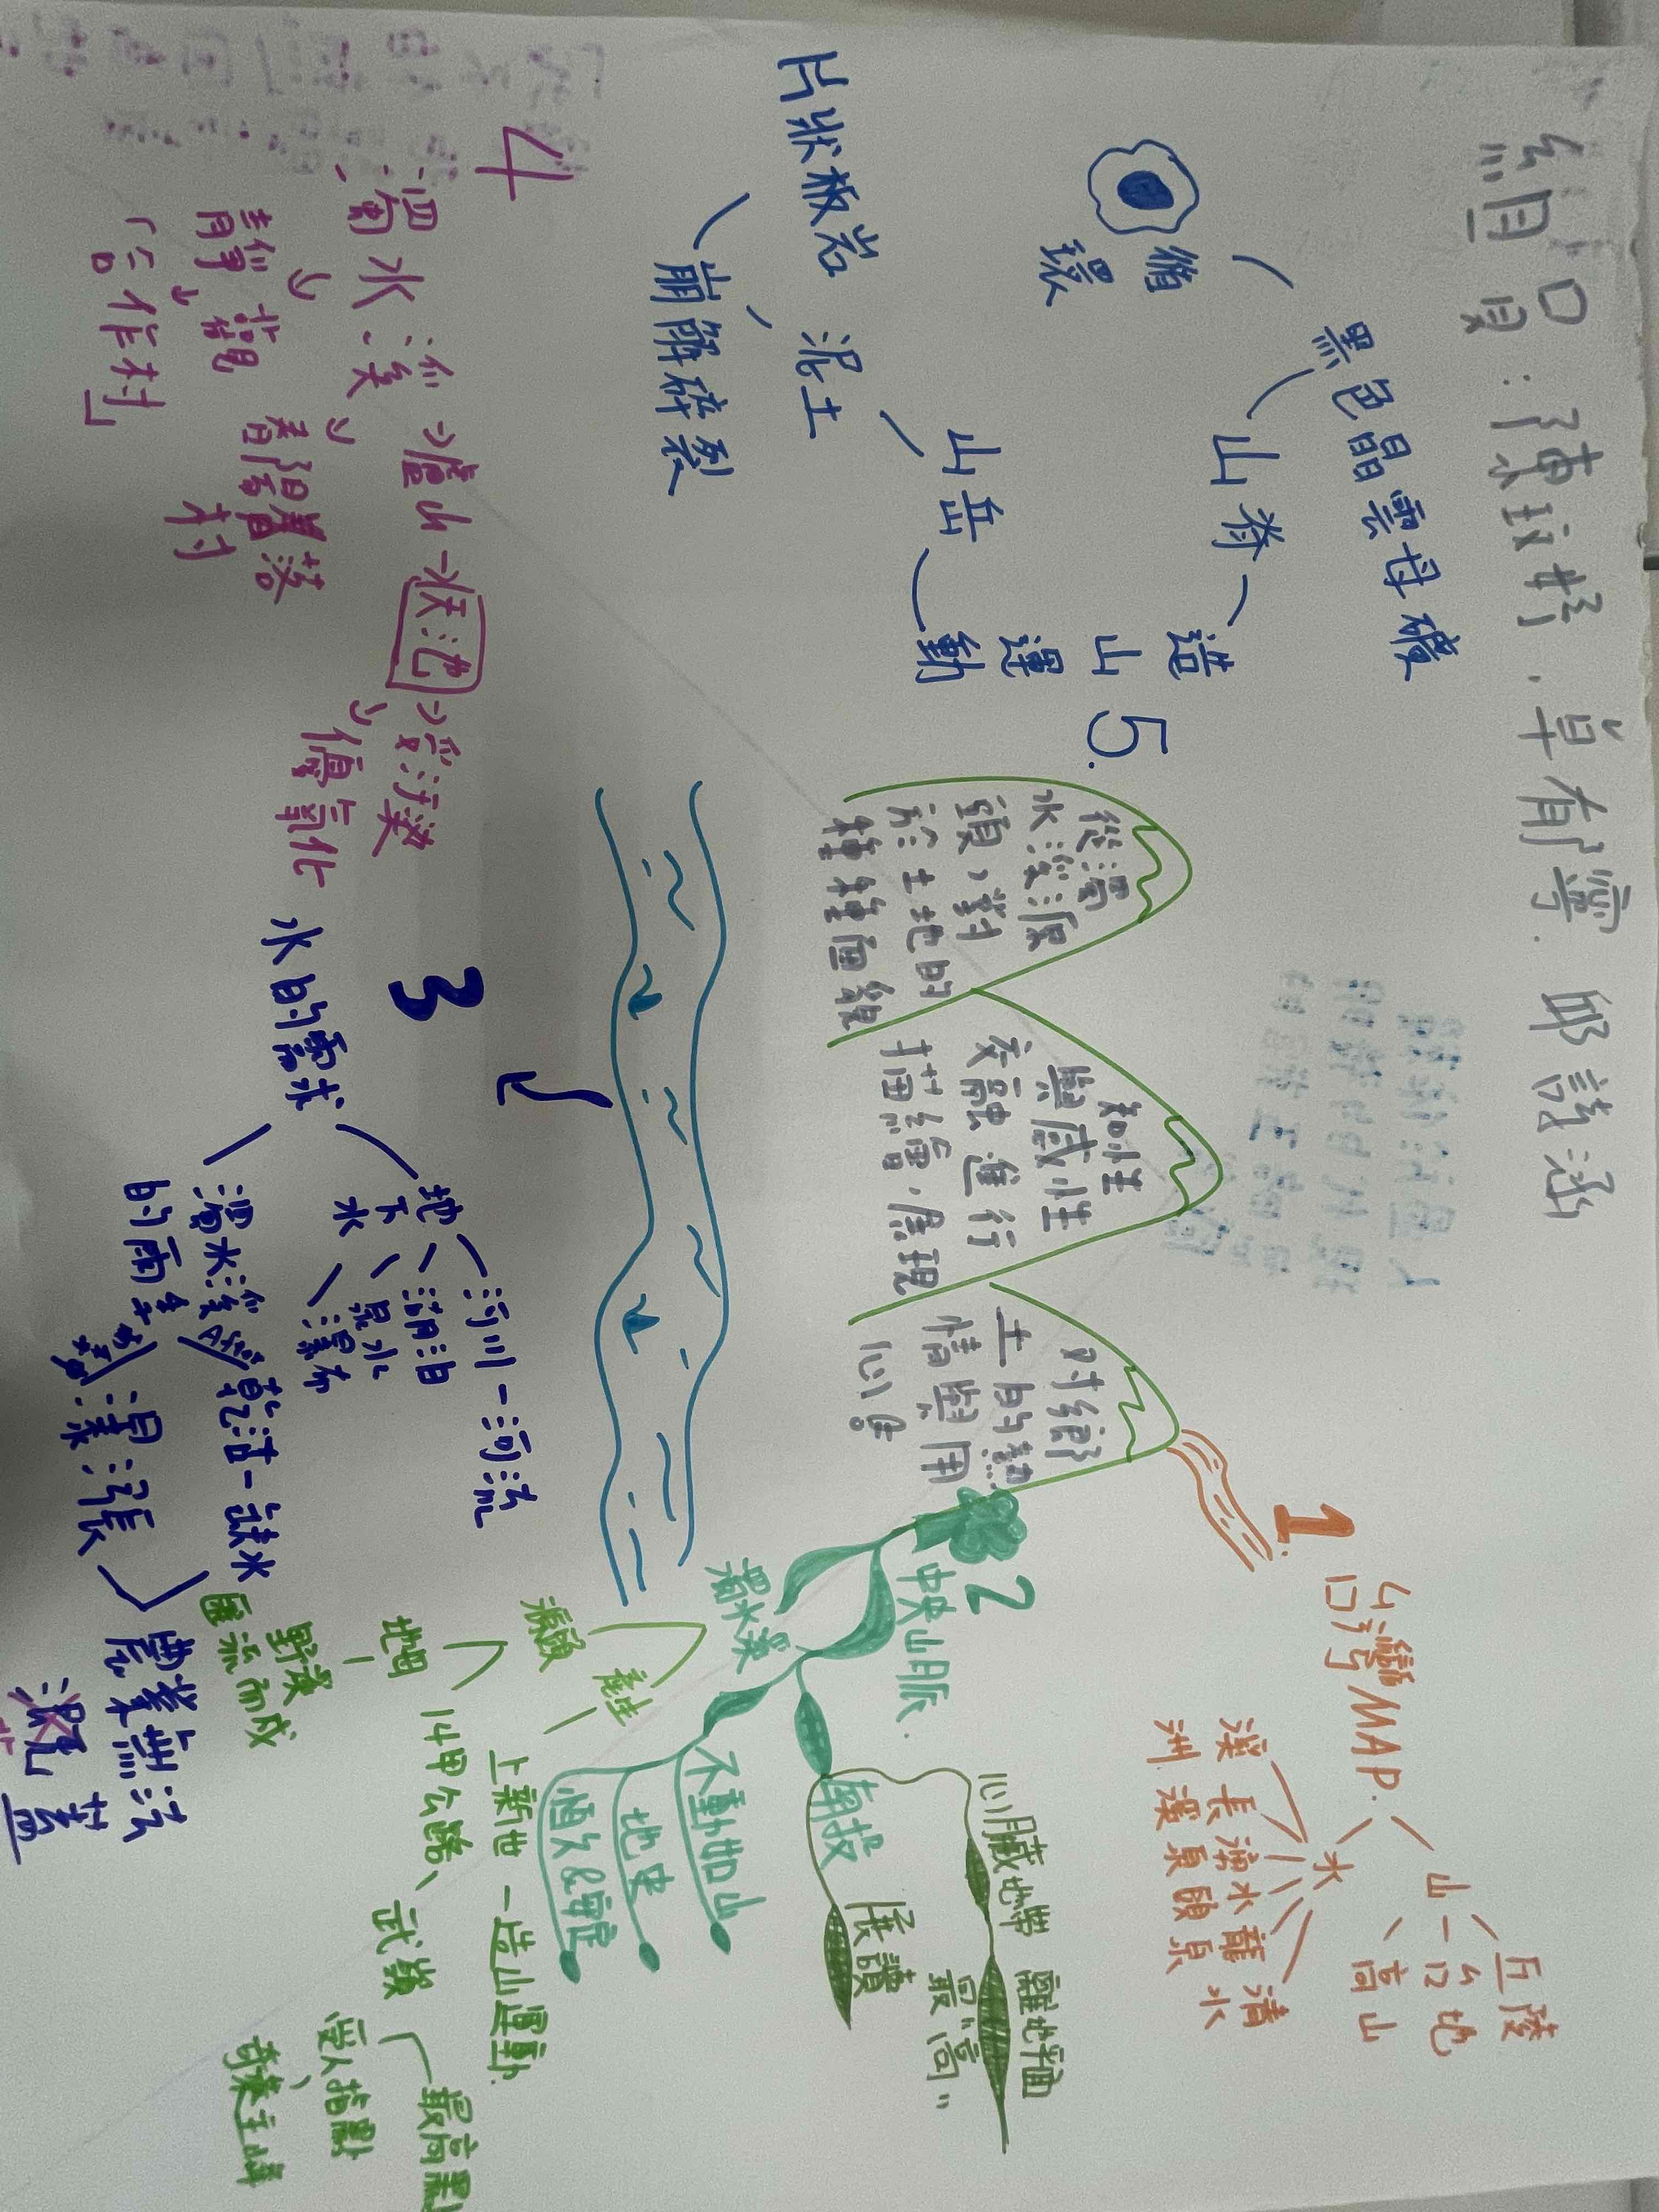 組員:陳玟妤.卓郁寧.邱詩涵
1.
台灣MAP.
山
丘陵
台地
高山
水
溪洲.
長溪
湧泉
水頭
龍泉
清水
2
中央山脈.
心臟地帶
離地平面
最"高"
南投
展讀
濁水溪
不動如山
地史
恆久&安定
產生
上新世-造山運動.
源頭
14甲公路
武嶺
最高點
受人指點
奇萊主峰
地母
野溪
匯流而成
3
水的需求
地下水
河川-河流
湖泊
泉水
瀑布
濁水溪
的雨季
After
乾沽-缺水
瀑漲
農業無法
溉蓋
4
濁水溪
→盧山→天池→受汙染
優氧化
春陽
落
村
靜觀
「合作村」
5.
從濁
水溪源
頭,對
於土地的
種種面貌
知性
與感性
交融進行
描繪,展現
对鄉
土的熱
情與用
心!
黑色晶雲母礦
山脊
造山運動
山岳
泥土
崩解碎裂
片狀板岩
循環